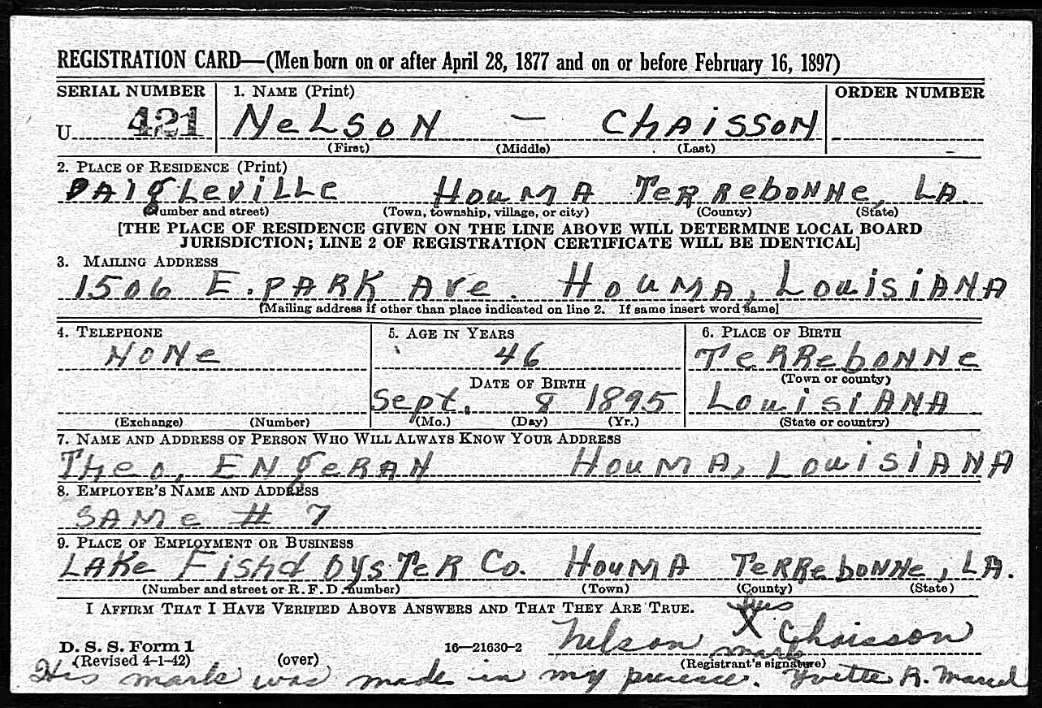 REGISTRATION CARD—(Men born on or after April 28, 1877 and on or before February 16, 1897)
SERIAL NUMBER 1. NAME (Print) ORDER NUMBER
U 421 NeLSoN — ChAiSSoN
(First) (Middle) (Last)
2. PLACE OF RESIDENCE (Print)
DAigLeviLLe HouMA TeRRebonne, LA.
(Number and street) (Town, township, village, or city) (County) (State)
[THE PLACE OF RESIDENCE GIVEN ON THE LINE ABOVE WILL DETERMINE LOCAL BOARD
JURISDICTION; LINE 2 OF REGISTRATION CERTIFICATE WILL BE IDENTICAL]
3. MAILING ADDRESS
1506 E. PARK Ave. HouMA, LouisiANA
[Mailing address if other than place indicated on line 2. If same insert word same]
4. TELEPHONE 5. AGE IN YEARS 6. PLACE OF BIRTH
NoNe 46 TeRRebonne
DATE OF BIRTH (Town or county)
Sept. 8 1895 LouisiANA
(Exchange) (Number) (Mo.) (Day) (Yr.) (State or country)
7. NAME AND ADDRESS OF PERSON WHO WILL ALWAYS KNOW YOUR ADDRESS
Theo, ENgeRAN HouMA, LouisiANA
8. EMPLOYER'S NAME AND ADDRESS
SAMe # 7
9. PLACE OF EMPLOYMENT OR BUSINESS
LAKe Fish & OySTeR Co. HouMA TeRRebonne, LA.
(Number and street or R. F. D. number) (Town) (County) (State)
I AFFIRM THAT I HAVE VERIFIED ABOVE ANSWERS AND THAT THEY ARE TRUE.
his
Nelson X Chaisson
mark
D. S. S. Form 1 16—21630-2
(Revised 4-1-42) (over) (Registrant's signature)
His mark was made in my presence. Yvette A. Marcel